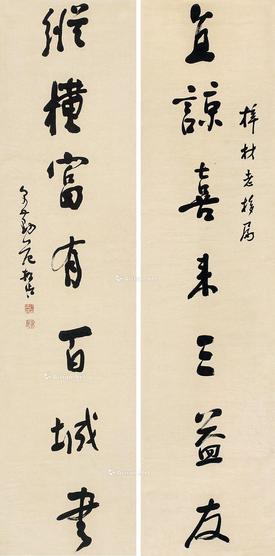 直諒喜來三益友
梓材老棣屬
縱橫富有百城書